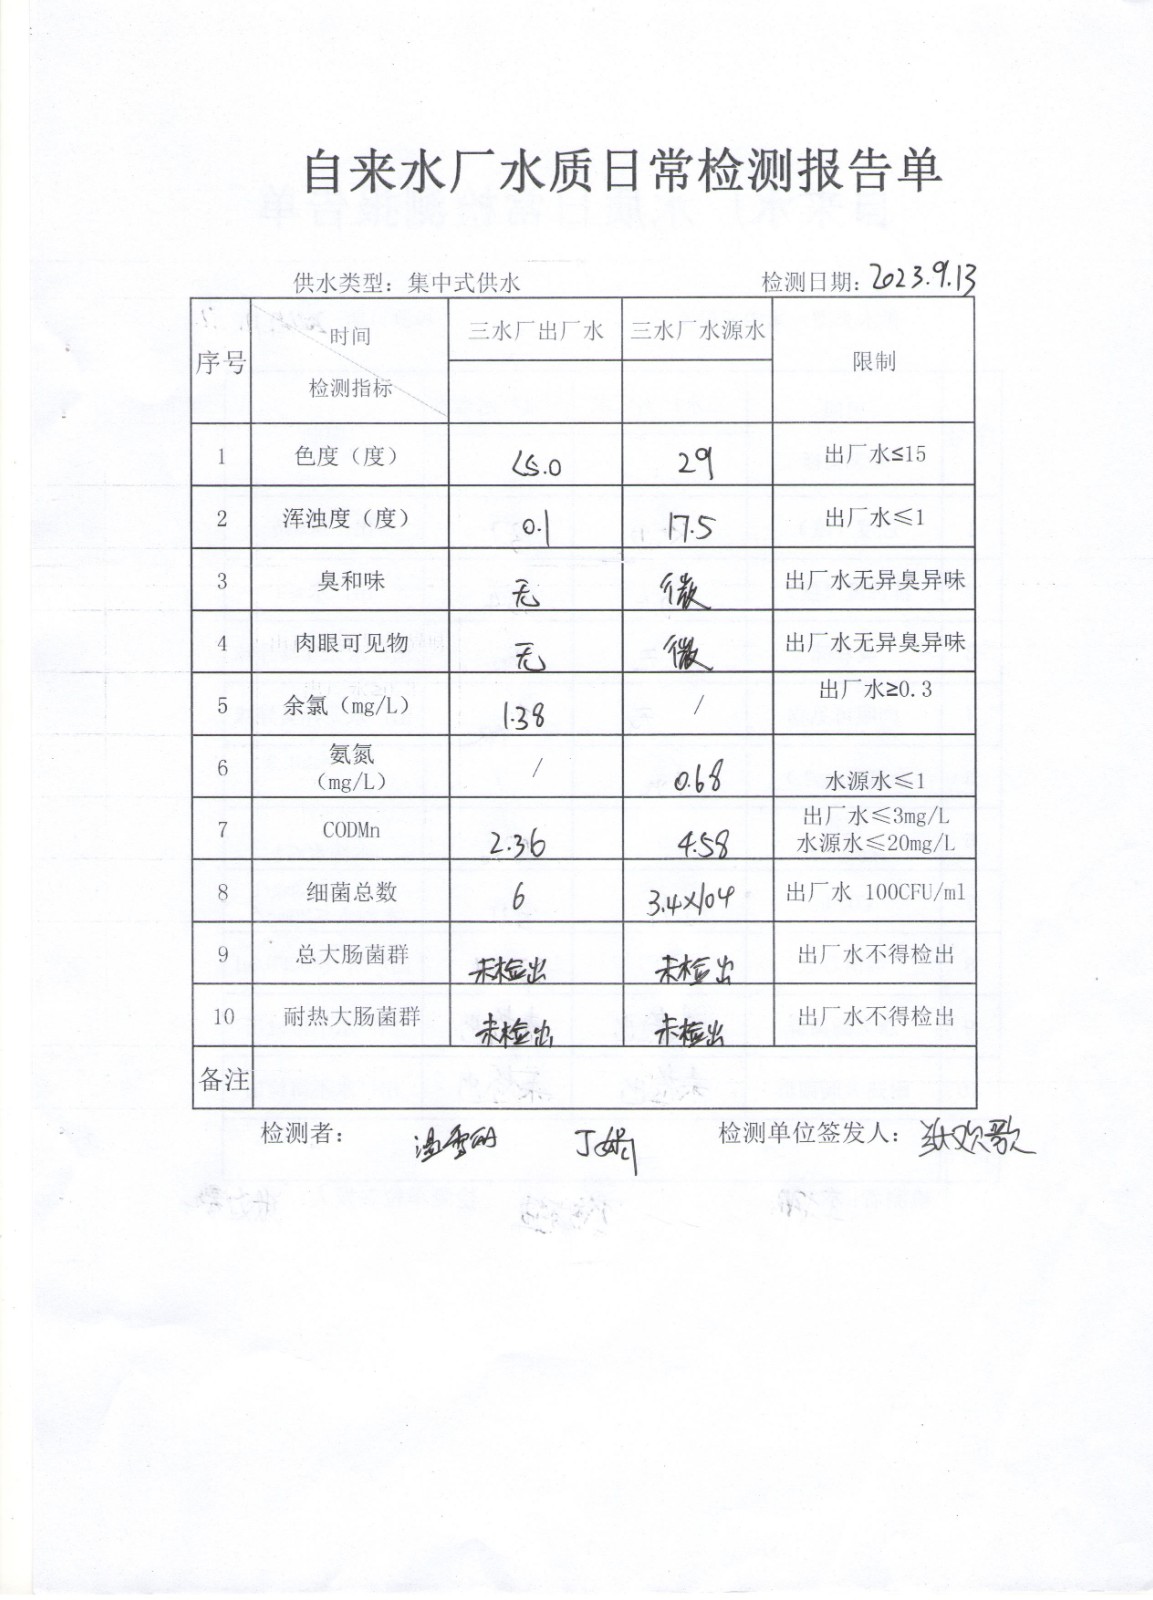 自来水厂水质日常检测报告单
供水类型：集中式供水 检测日期：2023.9.13
序号 时间 检测指标 三水厂出厂水 三水厂水源水 限制
1 色度（度） <5.0 29 出厂水≤15
2 浑浊度（度） 0.1 17.5 出厂水≤1
3 臭和味 无 微 出厂水无异臭异味
4 肉眼可见物 无 微 出厂水无异臭异味
5 余氯（mg/L） 1.38 / 出厂水≥0.3
6 氨氮 / 0.68 水源水≤1
（mg/L）
7 CODMn 2.36 4.58 出厂水≤3mg/L
水源水≤20mg/L
8 细菌总数 6 3.4×104 出厂水 100CFU/ml
9 总大肠菌群 未检出 未检出 出厂水不得检出
10 耐热大肠菌群 未检出 未检出 出厂水不得检出
备注
检测者： 检测单位签发人：张欢歌